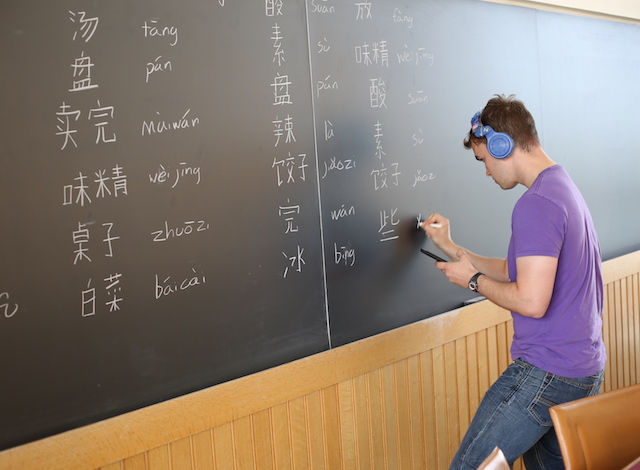 汤 tāng
盘 pán
卖完 màiwán
味精 wèijīng
桌子 zhuōzi
白菜 báicài
酸 suān
素 sù
盘 pán
辣 là
饺子 jiǎozi
完 wán
冰 bīng
放 fàng
味精 wèijīng
酸 suān
素 sù
饺子 jiǎozi
些